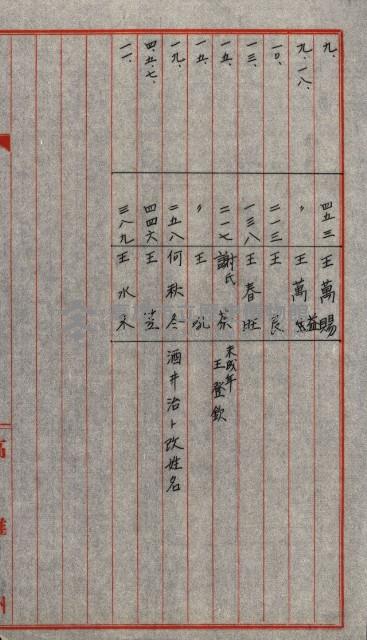 九、 四五三 王萬賜
九、一八、 〃 王萬益
一〇、 二一三 王良
一三、 一三八 王春旺
一五、 二一七 謝氏茶 未成年 王登欽
一五、 〃 王
一九、 二五八 何秋冬 酒井治ト改姓名
四、五、七、 四四六 王
一一、 三八九 王水木
高雄州